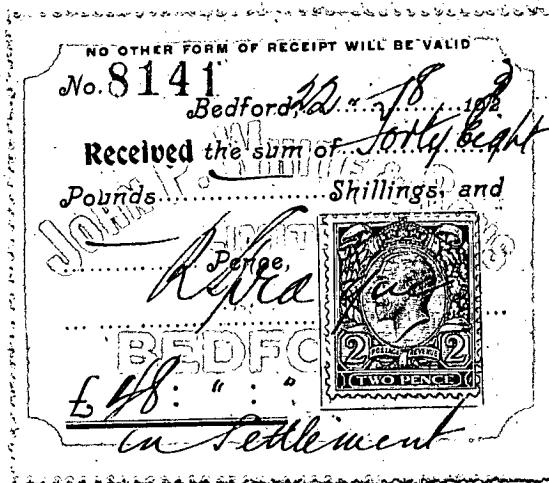 NO OTHER FORM OF RECEIPT WILL BE VALID
No. 8141
Bedford, 22 " 8 192
Received the sum of Forty Eight
Pounds Shillings, and
JOHN P. WHITE & SONS
LIMITED
Pence,
BEDFO
2 POSTAGE REVENUE 2
TWO PENCE
£ 48 : " : "
in Settlement